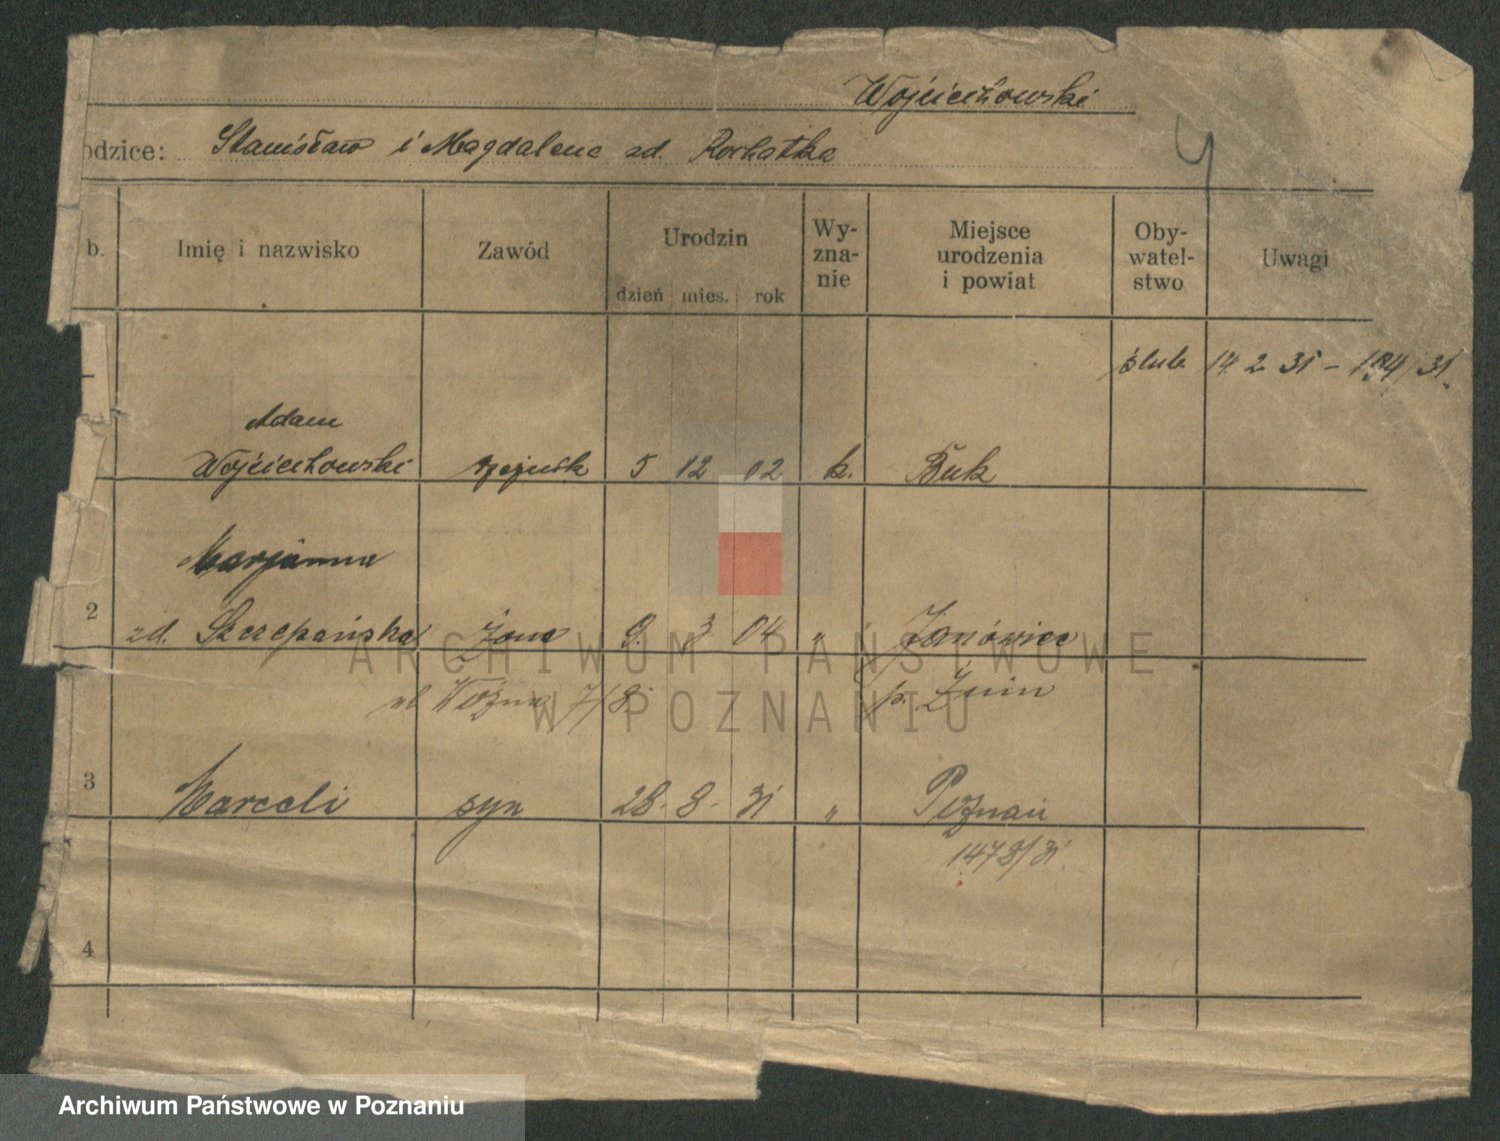 Wojciechowski
odzice: Stanisław i Magdalena zd. Rochatka
b.
Imię i nazwisko
Zawód
Urodzin
dzień mies. rok
Wy-
zna-
nie
Miejsce
urodzenia
i powiat
Oby-
watel-
stwo
Uwagi
ślub. 14 2 31 – 194/31.
Adam
Wojciechowski rzeźnik 5 12 02 k. Buk
Marjanna
2 zd. Szczepańska żona 9. 3 04 " Janówiec
ul Woźna 7/8. p. Żnin
3 Marceli syn 28. 8. 31 " Poznań
1478/31.
4
ARCHIWUM PAŃSTWOWE
W POZNANIU
Archiwum Państwowe w Poznaniu